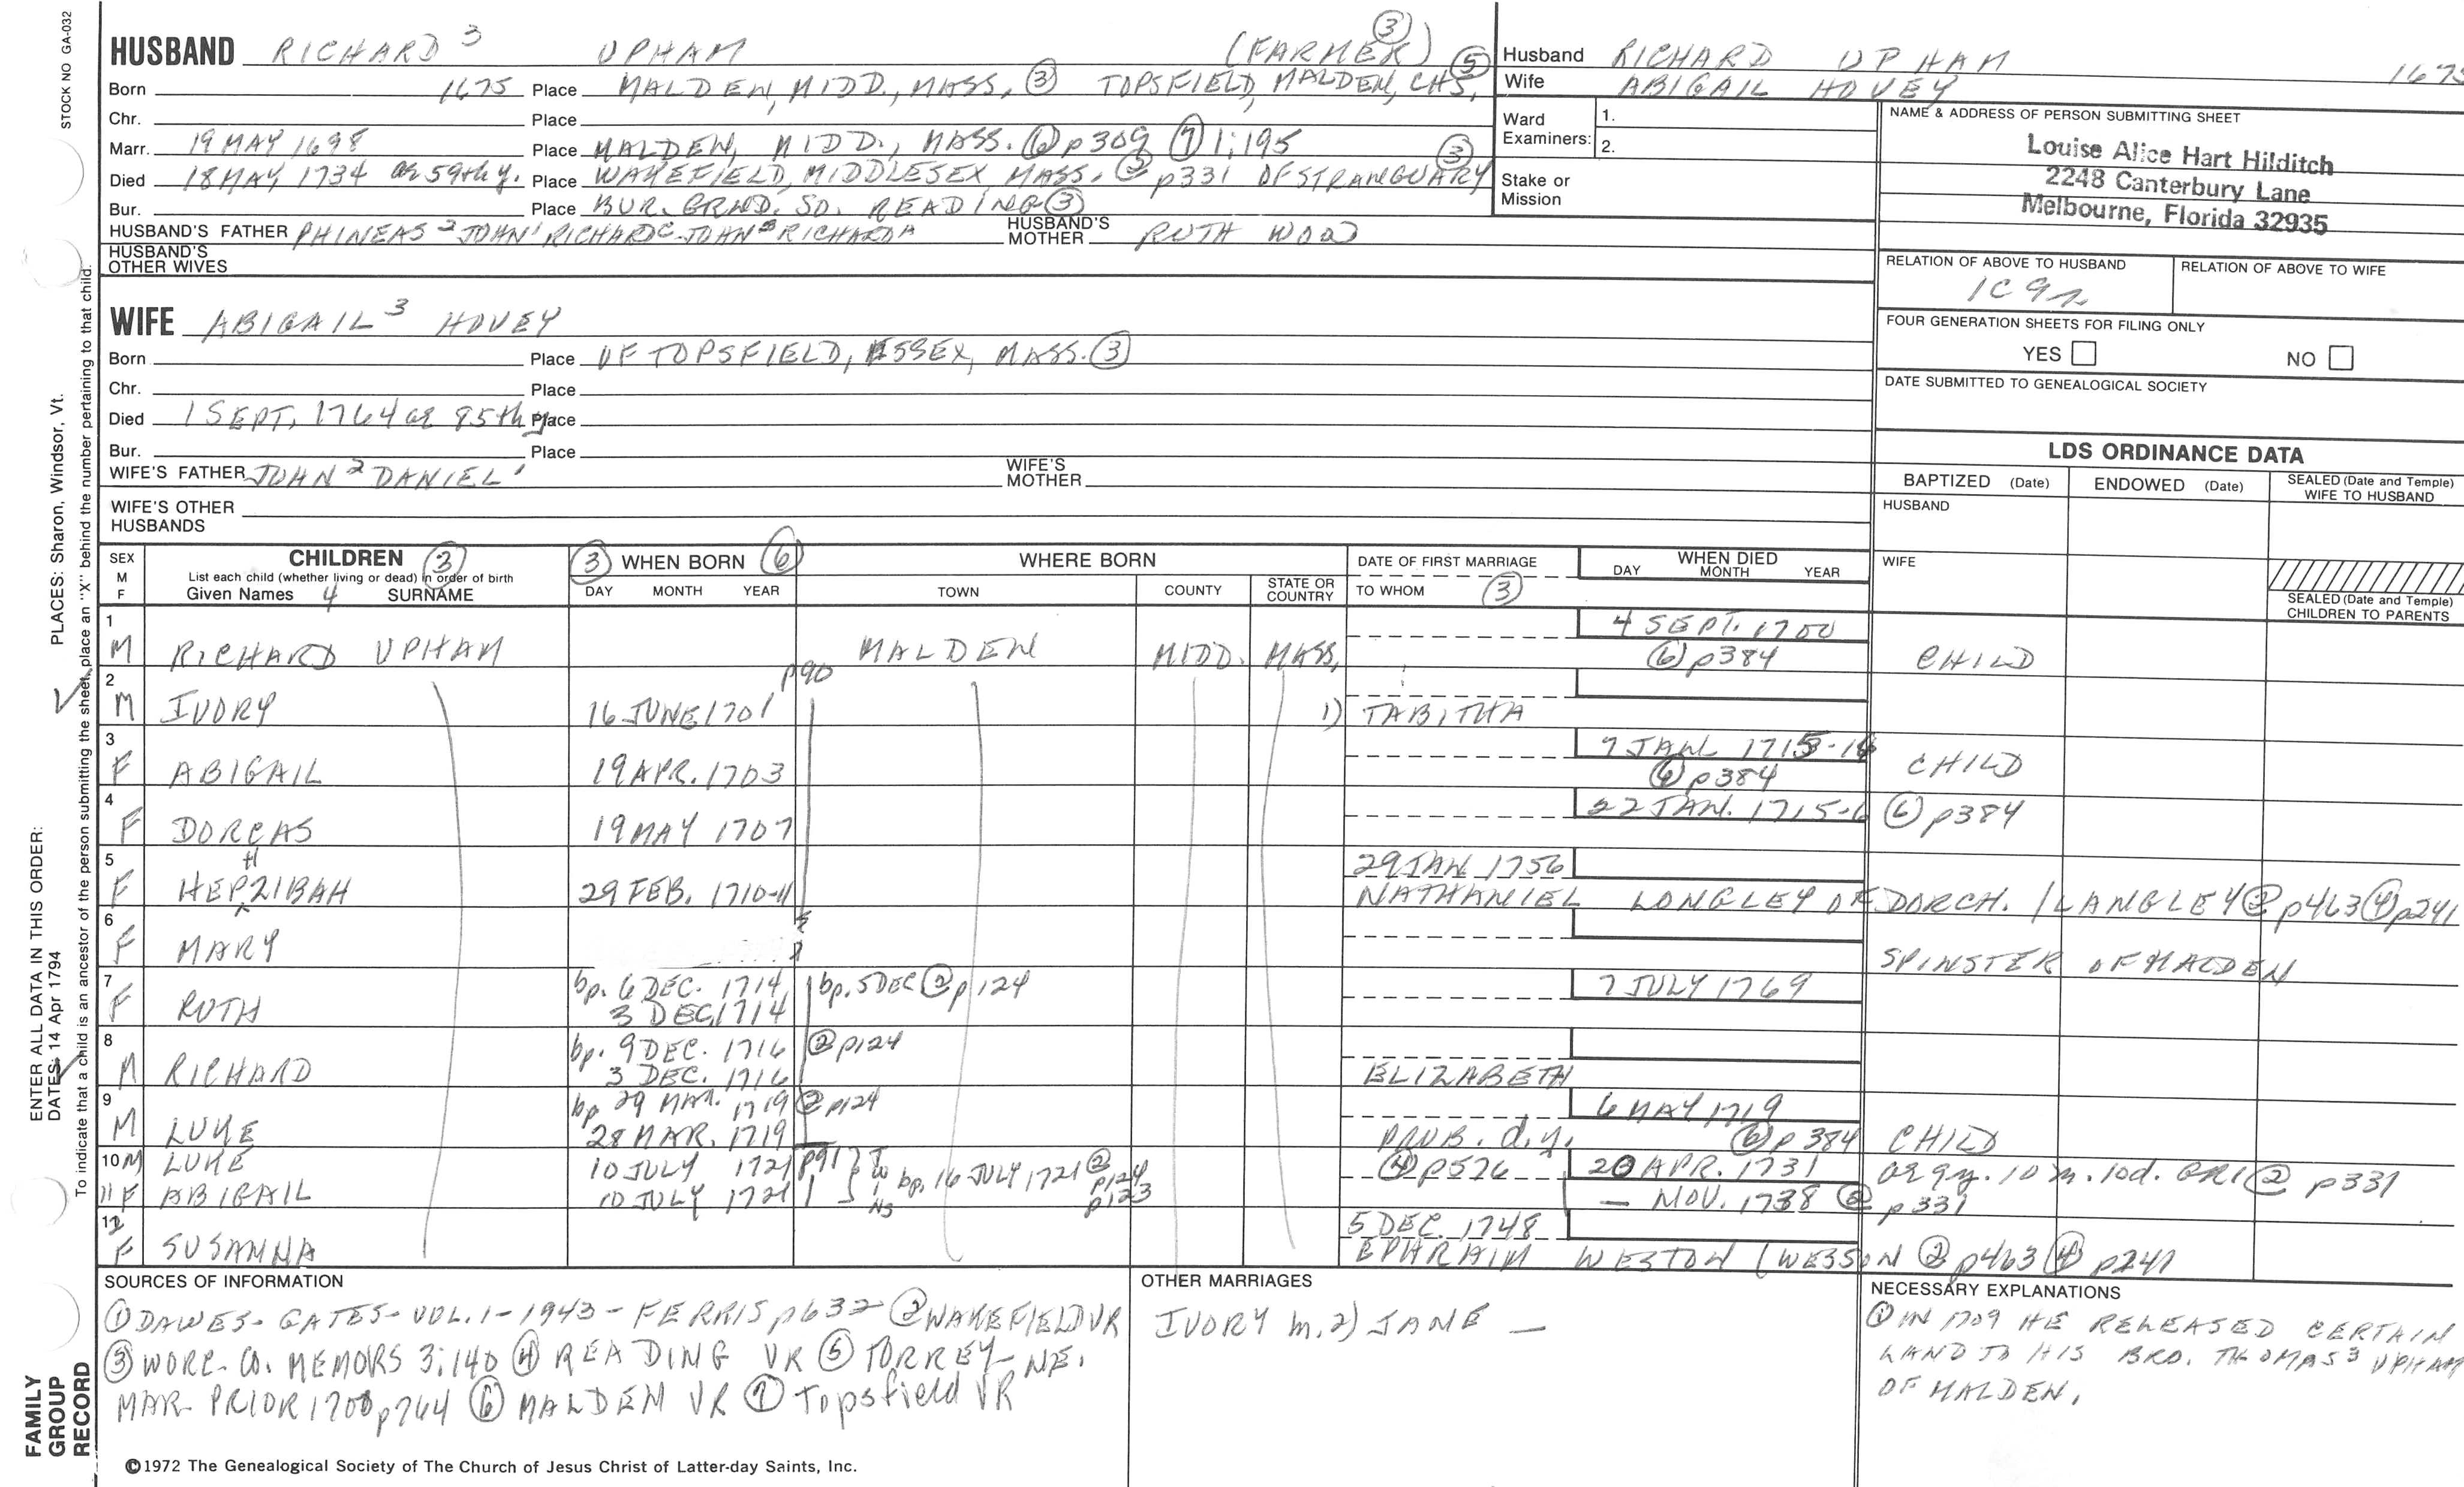 STOCK NO GA-032
HUSBAND RICHARD 3 UPHAM (FARMER) ③ ⑤
Born 1675 Place MALDEN, MIDD., MASS. ③ TOPSFIELD, MALDEN, CHS,
Chr. Place
Marr. 19 MAY 1698 Place MALDEN, MIDD., MASS. ⑥ p309 ⑦ 1:195
Died 18 MAY, 1734 ae 59th y. Place WAKEFIELD, MIDDLESEX, MASS. ② p331 OF STRANGUARY ③
Bur. Place BUR. GRND. SO. READING ③
HUSBAND'S FATHER PHINEAS 2 JOHN 1 RICHARD C JOHN B RICHARD A HUSBAND'S MOTHER RUTH WOOD
HUSBAND'S OTHER WIVES
Husband RICHARD UPHAM 1675
Wife ABIGAIL HOVEY
Ward Examiners: 1.
2.
Stake or Mission
NAME & ADDRESS OF PERSON SUBMITTING SHEET
Louise Alice Hart Hilditch
2248 Canterbury Lane
Melbourne, Florida 32935
RELATION OF ABOVE TO HUSBAND RELATION OF ABOVE TO WIFE
1C 9r
FOUR GENERATION SHEETS FOR FILING ONLY
YES NO
DATE SUBMITTED TO GENEALOGICAL SOCIETY
WIFE ABIGAIL 3 HOVEY
Born Place OF TOPSFIELD, ESSEX, MASS. ③
Chr. Place
Died 1 SEPT, 1764 ae 85th y Place
Bur. Place
WIFE'S FATHER JOHN 2 DANIEL 1 WIFE'S MOTHER
WIFE'S OTHER HUSBANDS
LDS ORDINANCE DATA
BAPTIZED (Date) ENDOWED (Date) SEALED (Date and Temple) WIFE TO HUSBAND
HUSBAND
WIFE
SEALED (Date and Temple) CHILDREN TO PARENTS
SEX M F CHILDREN ③ ③ WHEN BORN ⑥ WHERE BORN DATE OF FIRST MARRIAGE WHEN DIED
List each child (whether living or dead) in order of birth
Given Names 4 SURNAME DAY MONTH YEAR TOWN COUNTY STATE OR COUNTRY TO WHOM ③ DAY MONTH YEAR
1 M RICHARD UPHAM MALDEN MIDD. MASS, 4 SEPT. 1700 ⑥ p384 CHILD
2 M IVORY 16 JUNE 1701 p90 1) TABITHA
3 F ABIGAIL 19 APR. 1703 7 JAN. 1715-16 ⑥ p384 CHILD
4 F DORCAS 19 MAY 1707 22 JAN. 1715-6 ⑥ p384
5 F HEPHZIBAH 29 FEB. 1710-11 29 JAN. 1756
NATHANIEL LONGLEY OF DORCH. / LANGLEY ② p463 ④ p241
6 F MARY SPINSTER OF MALDEN
7 F RUTH bp. 6 DEC. 1714 bp. 5 DEC ② p124 7 JULY 1769
3 DEC, 1714
8 M RICHARD bp. 9 DEC. 1716 ② p124
3 DEC. 1716 ELIZABETH
9 M LUKE bp 29 MAR. 1719 ② p124 6 MAY 1719
28 MAR. 1719 PROB. d.y. ⑥ p384 CHILD
10 M LUKE 10 JULY 1721 p91 TWINS bp. 16 JULY 1721 ② p124 ④ p576 20 APR. 1731 ae 9y. 10 m. 10d. GR1 ② p331
11 F ABIGAIL 10 JULY 1721 p123 — NOV. 1738 ② p331
12 F SUSANNA 5 DEC. 1748
EPHRAIM WESTON (WESSON ② p463 ④ p241
SOURCES OF INFORMATION
① DAWES-GATES-VOL.1-1943-FERRIS p632 ② WAKEFIELD VR
③ WORC. CO. MEMORS 3:140 ④ READING VR ⑤ TORREY-NE.
MAR. PRIOR 1700 p764 ⑥ MALDEN VR ⑦ Topsfield VR
OTHER MARRIAGES
IVORY m. 2) JANE —
NECESSARY EXPLANATIONS
① IN 1709 HE RELEASED CERTAIN
LAND TO HIS BRO. THOMAS 3 UPHAM
OF MALDEN.
©1972 The Genealogical Society of The Church of Jesus Christ of Latter-day Saints, Inc.
FAMILY GROUP RECORD
ENTER ALL DATA IN THIS ORDER:
DATES: 14 Apr 1794
PLACES: Sharon, Windsor, Vt.
To indicate that a child is an ancestor of the person submitting the sheet, place an "X" behind the number pertaining to that child.